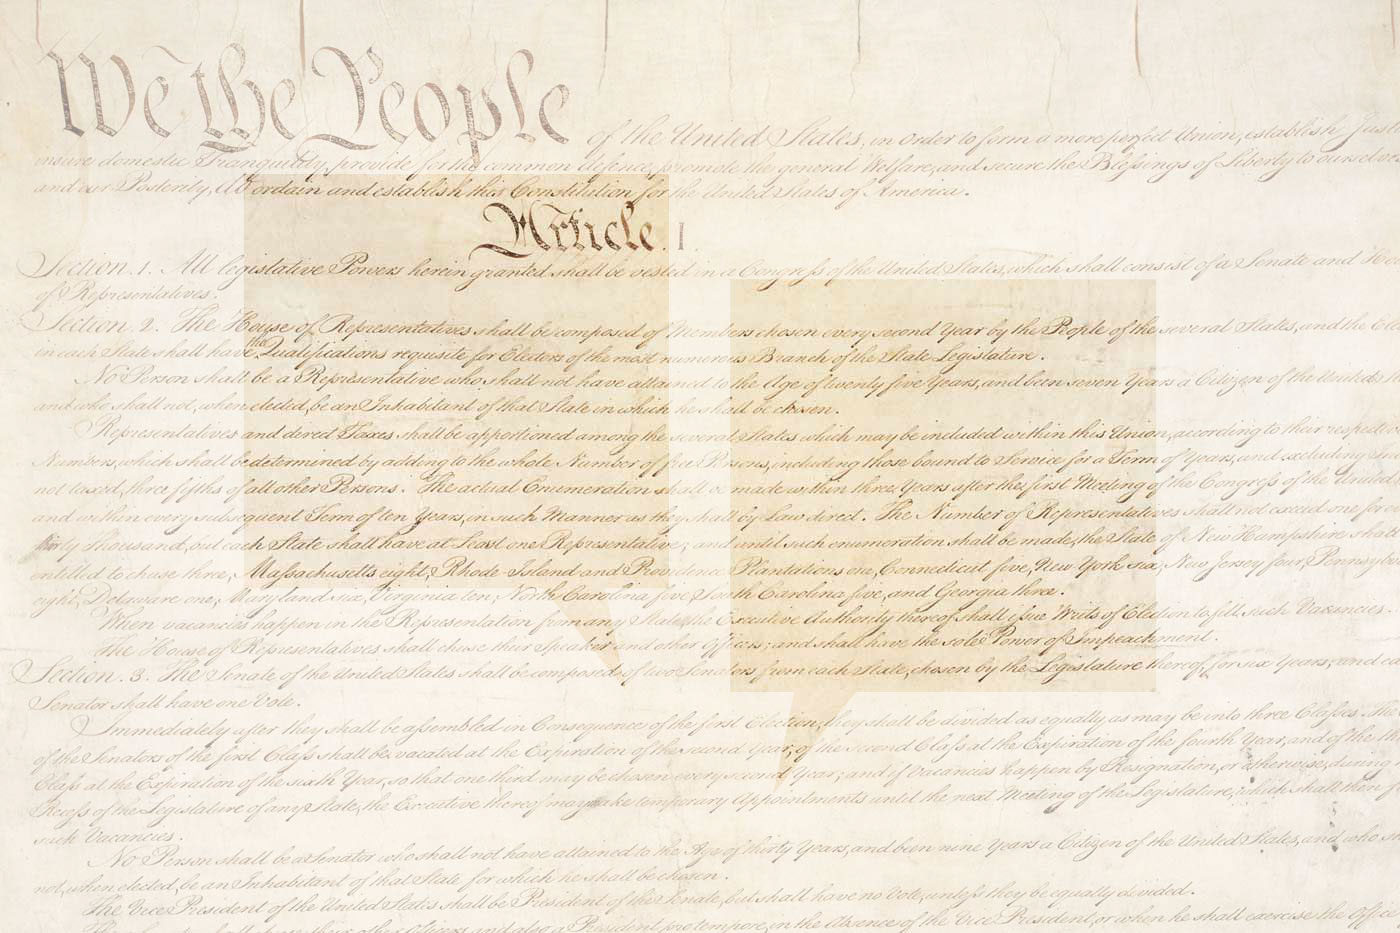 We the People of the United States, in Order to form a more perfect Union, establish Just
insure domestic Tranquility, provide for the common defence, promote the general Welfare, and secure the Blessings of Liberty to ourselves
and our Posterity, do ordain and establish this Constitution for the United States of America.
Article. I.
Section. 1. All legislative Powers herein granted shall be vested in a Congress of the United States, which shall consist of a Senate and Ho
of Representatives.
Section. 2. The House of Representatives shall be composed of Members chosen every second Year by the People of the several States, and the
in each State shall have the Qualifications requisite for Electors of the most numerous Branch of the State Legislature.
No Person shall be a Representative who shall not have attained to the Age of twenty five Years, and been seven Years a Citizen of the United
and who shall not, when elected, be an Inhabitant of that State in which he shall be chosen.
Representatives and direct Taxes shall be apportioned among the several States which may be included within this Union, according to their respective
Numbers, which shall be determined by adding to the whole Number of free Persons, including those bound to Service for a Term of Years, and excluding
not taxed, three fifths of all other Persons. The actual Enumeration shall be made within three Years after the first Meeting of the Congress of the United
and within every subsequent Term of ten Years, in such Manner as they shall by Law direct. The Number of Representatives shall not exceed one for
thirty Thousand, but each State shall have at Least one Representative; and until such enumeration shall be made, the State of New Hampshire shall
entitled to chuse three, Massachusetts eight, Rhode-Island and Providence Plantations one, Connecticut five, New-York six, New Jersey four, Pennsylv
eight, Delaware one, Maryland six, Virginia ten, North Carolina five, South Carolina five, and Georgia three.
When vacancies happen in the Representation from any State, the Executive Authority thereof shall issue Writs of Election to fill such Vacancies.
The House of Representatives shall chuse their Speaker and other Officers; and shall have the sole Power of Impeachment.
Section. 3. The Senate of the United States shall be composed of two Senators from each State, chosen by the Legislature thereof, for six Years; and
Senator shall have one Vote.
Immediately after they shall be assembled in Consequence of the first Election, they shall be divided as equally as may be into three Classes. The
of the Senators of the first Class shall be vacated at the Expiration of the second Year, of the second Class at the Expiration of the fourth Year, and of the
Class at the Expiration of the sixth Year, so that one third may be chosen every second Year; and if Vacancies happen by Resignation, or otherwise, during
Recess of the Legislature of any State, the Executive thereof may make temporary Appointments until the next Meeting of the Legislature, which shall then
such Vacancies.
No Person shall be a Senator who shall not have attained to the Age of thirty Years, and been nine Years a Citizen of the United States, and who
not, when elected, be an Inhabitant of that State for which he shall be chosen.
The Vice President of the United States shall be President of the Senate, but shall have no Vote, unless they be equally divided.
their other Officers, and also a President pro tempore, in the Absence of the Vice President, or when he shall exercise the Office